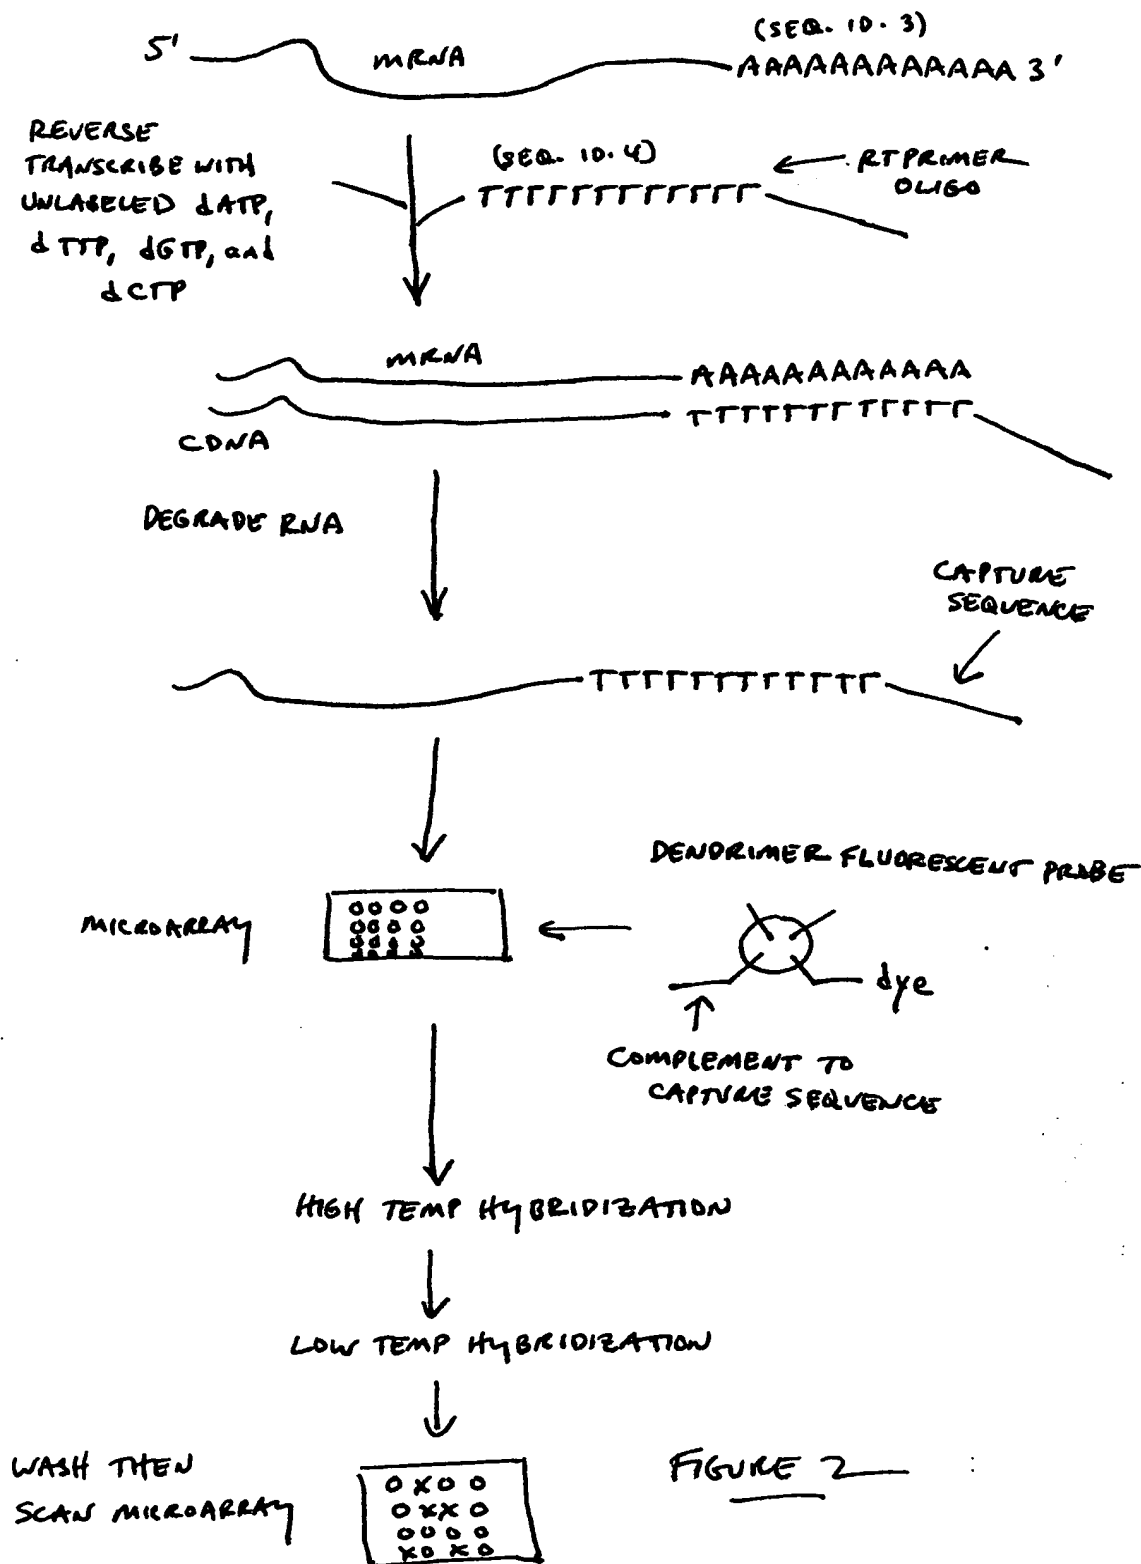 (SEQ. ID. 3)
5' mRNA AAAAAAAAAAAAA 3'
REVERSE
TRANSCRIBE WITH
UNLABELED dATP,
dTTP, dGTP, and
dCTP
(SEQ. ID. 4)
TTTTTTTTTTTT
RT PRIMER
OLIGO
mRNA
AAAAAAAAAAAA
TTTTTTTTTTTT
CDNA
DEGRADE RNA
CAPTURE
SEQUENCE
TTTTTTTTTTTT
DENDRIMER FLUORESCENT PROBE
MICROARRAY
dye
COMPLEMENT TO
CAPTURE SEQUENCE
HIGH TEMP HYBRIDIZATION
LOW TEMP HYBRIDIZATION
WASH THEN
SCAN MICROARRAY
FIGURE 2